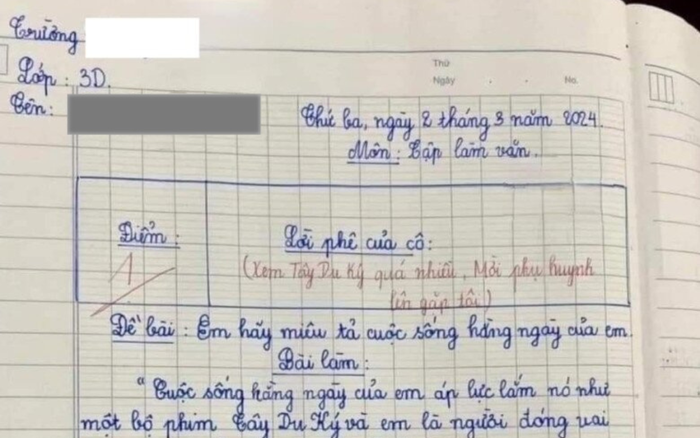 Trường
Thứ
Lớp: 3D.
Ngày . . No.
Tên:
Thứ ba, ngày 2 tháng 3 năm 2024.
Môn: Tập làm văn.
Điểm:
1
Lời phê của cô:
(Xem Tây Du Ký quá nhiều, Mời phụ huynh
lên gặp tôi)
Đề bài: Em hãy miêu tả cuộc sống hằng ngày của em.
Bài làm:
"Cuộc sống hằng ngày của em áp lực lắm nó như
một bộ phim Tây Du Ký và em là người đóng vai